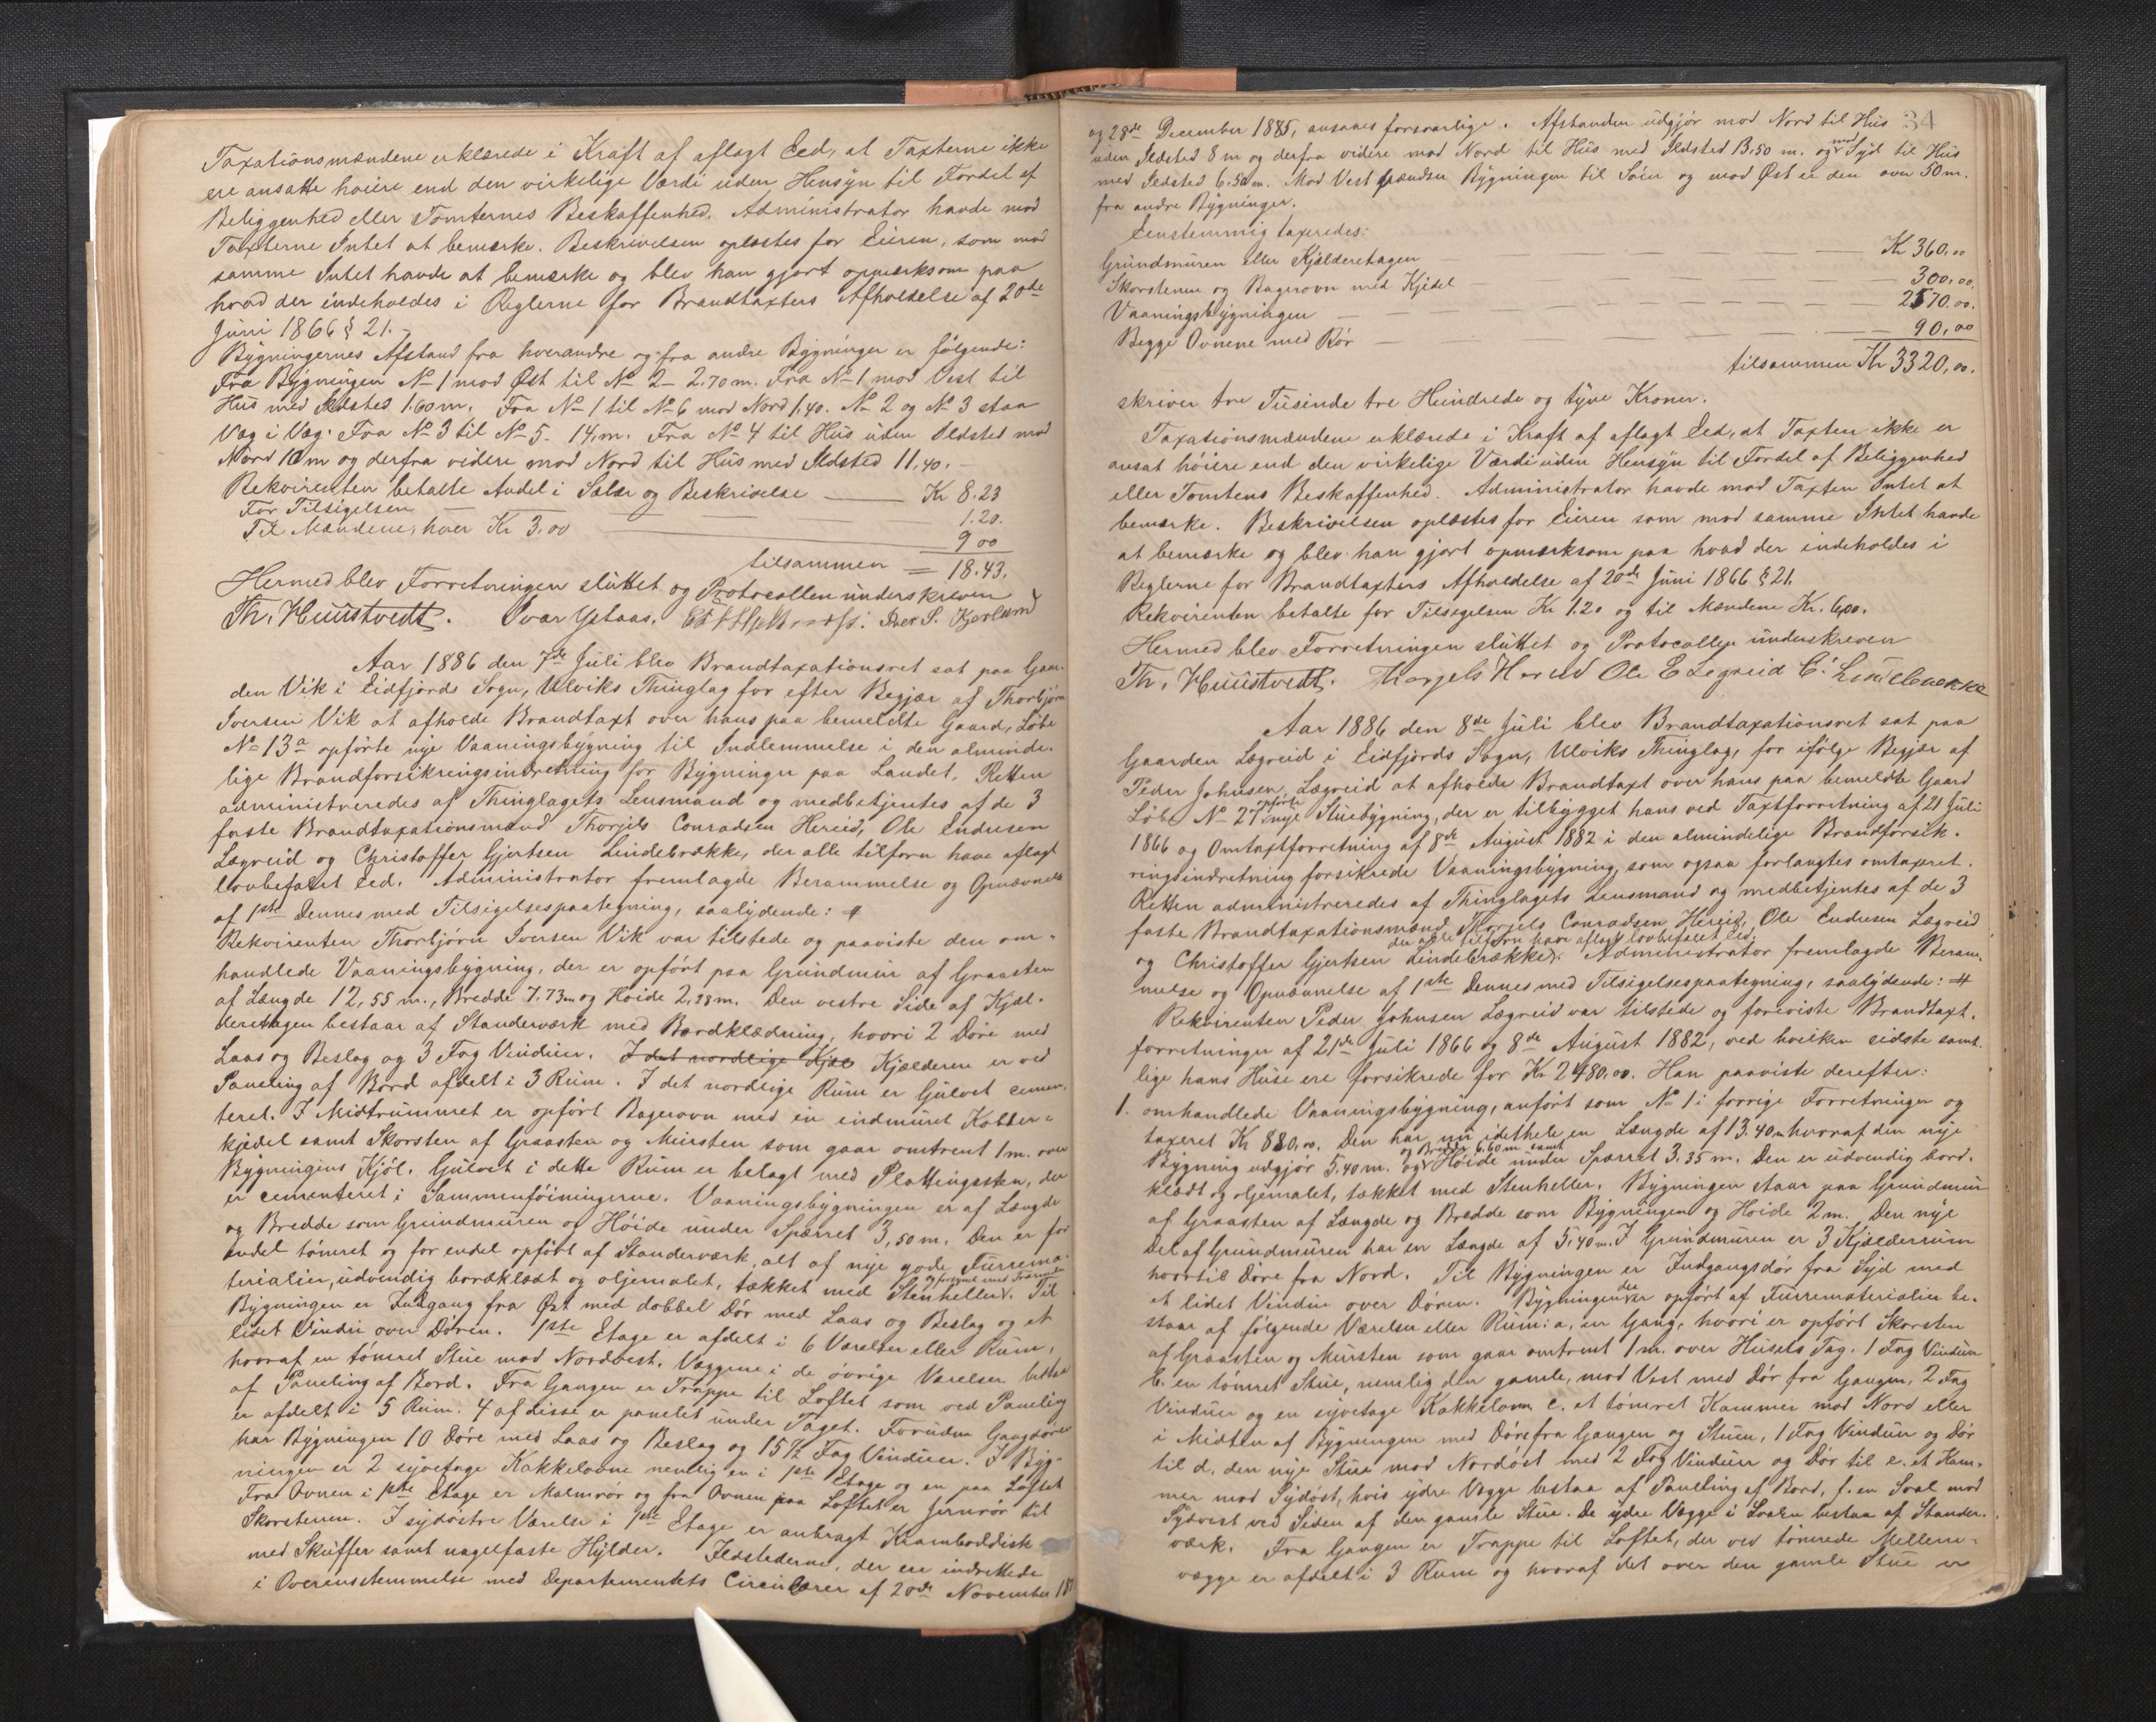 Taxationsmændene erklærede i Kraft af aflagt Eed, at Taxterne ikke
ere ansatte høiere end den virkelige Værdi uden Hensyn til Fordel af
Beliggenhed eller Tomternes Beskaffenhed. Administrator havde mod
Taxterne Intet at bemærke. Beskrivelsen oplæstes for Eieren, som mod
samme Intet havde at bemærke og blev han gjort opmærksom paa
hvad der indeholdes i Reglerne for Brandtaxters Afholdelse af 20de
Juni 1866 § 21.
Bygningernes Afstand fra hverandre og fra andre Bygninger er følgende:
Fra Bygningen No 1 mod Øst til No 2 - 2.70 m. Fra No 1 mod Vest til
Hus med Ildsted 1.60 m. Fra No 1 til No 6 mod Nord 1.40. No 2 og No 3 staa
Væg i Væg. Fra No 3 til No 5 - 14 m. Fra No 4 til Hus uden Ildsted mod
Nord 10 m og derfra videre mod Nord til Hus med Ildsted 11,40. -
Rekvirenten betalte Andel i Salær og Beskrivelse — Kr 8.23
For Tilsigelsen — 1.20.
Til Mændene, hver Kr 3.00 — 9 00
tilsammen = 18.43.
Hermed blev Forretningen sluttet og Protocollen underskreven
Th. Huustvedt. Ivar Ystaas. Per S. Kjerland
Aar 1886 den 7de Juli blev Brandtaxationsret sat paa Gaar-
den Vik i Eidfjords Sogn, Ulviks Thinglag for efter Begjær af Thorbjørn
Iversen Vik at afholde Brandtaxt over hans paa bemeldte Gaard, Løbe
No 13a opførte nye Vaaningsbygning til Indlemmelse i den alminde-
lige Brandforsikringsindretning for Bygninger paa Landet. Retten
administreredes af Thinglagets Lensmand og medbetjentes af de 3
faste Brandtaxationsmænd Thorjils Conradsen Hereid, Ole Endresen
Lægreid og Christoffer Gjertsen Lindebrække, der alle tilforn have aflagt
lovbefalet Eed. Administrator fremlagde Berammelse og Opnævnelse
af 1ste Dennes med Tilsigelsespaategning, saalydende: #
Rekvirenten Thorbjørn Iversen Vik var tilstede og paaviste den om-
handlede Vaaningsbygning, der er opført paa Grundmur af Graasten
af Længde 12,55 m., Bredde 7.73 m og Høide 2,28 m. Den vestre Side af Kjæl-
deretagen bestaar af Standerværk med Bordklædning, hvori 2 Døre med
Laas og Beslag og 3 Fag Vinduer. I det nordlige Kjæl Kjælderen er ved
Paneling af Bord afdelt i 3 Rum. I det nordlige Rum er Gulvet cemen-
teret. I Midtrummet er opført Bagerovn med en indmuret Kobber-
kjedel samt Skorsten af Graasten og Mursten som gaar omtrent 1 m. over
Bygningens Kjøl. Gulvet i dette Rum er belagt med Plattingssten, der
er cementeret i Sammenføiningerne. Vaaningsbygningen er af Længde
og Bredde som Grundmuren og Høide under Spærret 3,50 m. Den er for
endel tømret og for endel opført af Standerværk, alt af nye gode Furrema-
terialier, udvendig bordklædt og oljemalet, tækket med Stenheller. Til
Bygningen er Indgang fra Øst med dobbel Dør med Laas og Beslag og et
lidet Vindu over Døren. 1ste Etage er afdelt i 6 Værelser eller Rum,
hvoraf en tømret Stue mod Nordvest. Væggene i de øvrige Værelser bestaa
af Paneling af Bord. Fra Gangen er Trappe til Loftet som ved Paneling
er afdelt i 5 Rum. 4 af disse er panelet under Taget. Foruden Gangdøren
har Bygningen 10 Døre med Laas og Beslag og 15½ Fag Vinduer. I Byg-
ningen er 2 syvetage Kakkelovne nemlig en i 1ste Etage og en paa Loftet
Fra Ovnen i 1ste Etage er Malmrør og fra Ovnen paa Loftet er Jernrør til
Skorstenen. I sydøstre Værelse i 1ste Etage er anbragt Kramboddisk
med Skuffer samt nagelfaste Hylder. Ildstederne, der ere indrettede
i Overensstemmelse med Departementets Circulærer af 20de November 18
34
og 28de December 1885, ansaaes forsvarlige. Afstanden udgjør mod Nord til Hus
uden Ildsted 8 m og derfra videre mod Nord til Hus med Ildsted 13.50 m. og mod Syd til Hus
med Ildsted 6.50 m. Mod Vest grændser Bygningen til Søen og mod Øst er den over 50 m.
fra andre Bygninger.
Eenstemmig taxeredes:
Grundmuren eller Kjælderetagen — Kr 360,00
Skorstenen og Bagerovn med Kjedel — 300,00.
Vaaningsbygningen — 2570.00.
Begge Ovnene med Rør — 90,00
tilsammen Kr 3320,00.
skriver tre Tusinde tre Hundrede og tyve Kroner.
Taxationsmændene erklærede i Kraft af aflagt Eed, at Taxten ikke er
ansat høiere end den virkelige Værdi uden Hensyn til Fordel af Beliggenhed
eller Tomtens Beskaffenhed. Administrator havde mod Taxten Intet at
bemærke. Beskrivelsen oplæstes for Eieren som mod samme Intet havde
at bemærke og blev han gjort opmærksom paa hvad der indeholdes i
Reglerne for Brandtaxters Afholdelse af 20de Juni 1866 § 21.
Rekvirenten betalte for Tilsigelsen Kr 1.20 og til Mændene Kr. 6,00.
Hermed blev Forretningen sluttet og Protocollen underskreven
Th. Huustvedt. Thorjels Hereid Ole E Lægreid C. Lindebrække
Aar 1886 den 8de Juli blev Brandtaxationsret sat paa
Gaarden Lægreid i Eidfjords Sogn, Ulviks Thinglag, for ifølge Begjær af
Peder Johnsen Lægreid at afholde Brandtaxt over hans paa bemeldte Gaard
Løbe No 27 opførte nye Stuebygning, der er tilbygget hans ved Taxtforretning af 21 Juli
1866 og Omtaxtforretning af 8de August 1882 i den almindelige Brandforsik-
ringsindretning forsikrede Vaaningsbygning, som ogsaa forlangtes omtaxeret.
Retten administreredes af Thinglagets Lensmand og medbetjentes af de 3
faste Brandtaxationsmænd Thorjels Conradsen Hereid, Ole Endresen Lægreid
der alle tilforn have aflagt lovbefalet Eed.
og Christoffer Gjertsen Lindebrække. Administrator fremlagde Beram-
melse og Opnævnelse af 1ste Dennes med Tilsigelsespaategning, saalydende: #
Rekvirenten Peder Johnsen Lægreid var tilstede og foreviste Brandtaxt-
forretninger af 21de Juli 1866 og 8de August 1882, ved hvilken sidste samt-
lige hans Huse ere forsikrede for Kr 2480,00. Han paaviste derefter:
1. omhandlede Vaaningsbygning, anført som No 1 i forrige Forretninger og
taxeret Kr 880,00. Den har nu idethele en Længde af 13.40 m hvoraf den nye
og Bredde 6.60 m samt
Bygning udgjør 5,40 m. og Høide under Spærret 3.35 m. Den er udvendig bord-
klædt og oljemalet, tækket med Stenheller. Bygningen staar paa Grundmur
af Graasten af Længde og Bredde som Bygningen og Høide 2 m. Den nye
Del af Grundmuren har en Længde af 5,40 m. I Grundmuren er 3 Kjælderrum
hvortil Døre fra Nord. Til Bygningen er Indgangsdør fra Syd med
et lidet Vindue over Døren. Bygningen der er opført af Furrematerialier be-
staar af følgende Værelser eller Rum: a, en Gang, hvori er opført Skorsten
af Graasten og Mursten som gaar omtrent 1 m. over Husets Tag. 1 Fag Vinduer
b. en tømret Stue, nemlig den gamle, mod Vest med Dør fra Gangen, 2 Fag
Vinduer og en syvetage Kakkelovn c. et tømret Kammer mod Nord eller
i Midten af Bygningen med Døre fra Gangen og Stuen, 1 Fag Vinduer og Dør
til d. den nye Stue mod Nordøst med 2 Fag Vinduer og Dør til e. et Kam-
mer mod Sydøst, hvis ydre Vægge bestaa af Paneling af Bord, f. en Sval mod
Sydvest ved Siden af den gamle Stue. De ydre Vægge i Svalen bestaa af Stander-
værk. Fra Gangen er Trappe til Loftet, der ved tømrede Mellem-
vægge er afdelt i 3 Rum og hvoraf det over den gamle Stue er